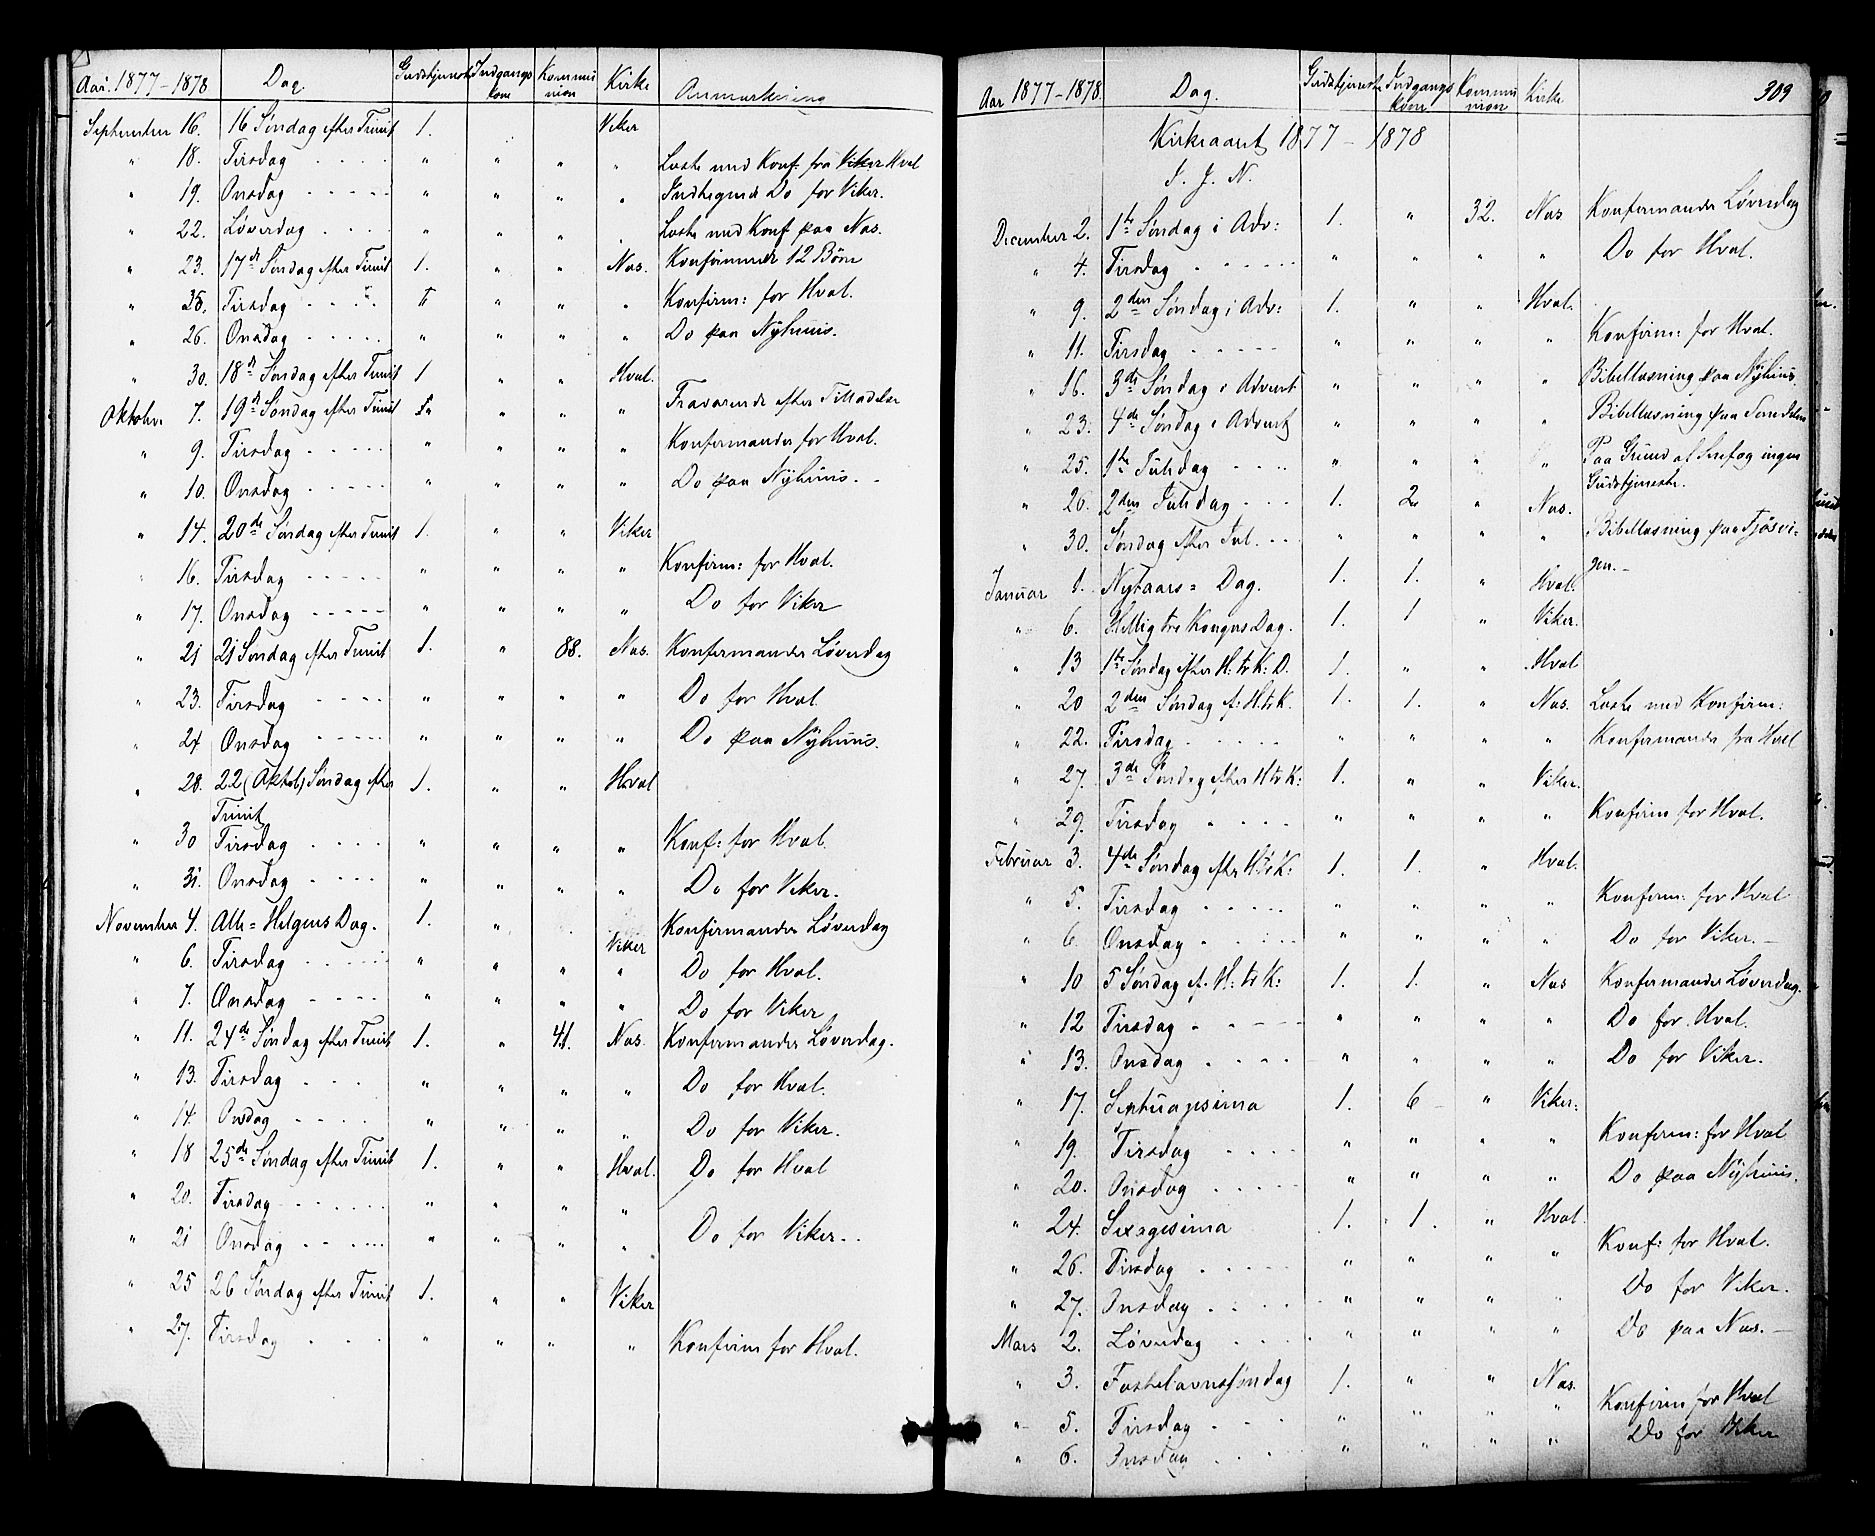 Aar. 1877-1878 Dag Gudstjeneste Indgangs kone Kommunion Kirke Anmærkning
September 16. 16 Søndag efter Trinit 1. Viker
" 18. Tirsdag - - - - " " " " Læste med Konf. fra Viker Hval
" 19. Onsdag - - - - - " " " " Indtegnede Do for Viker.
" 22. Løverdag - - - - " " " " Læste med Konf paa Næs.
" 23. 17de Søndag efter Trinit 1. " " Næs. Konfirmerede 12 Børn
" 25. Tirsdag - - - - " " " Konfirm: for Hval.
" 26. Onsdag - - - - - " " " " Do paa Nÿhuus.
" 30. 18de Søndag efter Trinit 1 " " Hval.
Oktober 7. 19de Søndag efter Trinit " " " Fraværende efter Tilladelse
" 9. Tirsdag - - - - - " " " " Konfermander for Hval.
" 10. Onsdag - - - - - " " " " Do paa Nÿhuus. -
" 14. 20de Søndag efter Trinit 1. " " Viker
" 16. Tirsdag - - - - - " " " " Konfirm: for Hval.
" 17. Onsdag - - - - - " " " " Do for Viker
" 21 21 Søndag efter Trinit 1. " 88. Næs. Konfermander Løverdag
" 23. Tirsdag - - - - - " " " " Do for Hval
" 24 Onsdag - - - - - " " " " Do paa Nÿhuus.
" 28. 22 (Aktob) Søndag efter 1. " " Hval
Trinit
" 30 Tirsdag - - - - " " " " Konf: for Hval.
" 31. Onsdag - - - - " " " " Do for Viker.
November 4. Alle = Helgens Dag. 1. " Viker Konfirmander Løverdag
" 6. Tirsdag - - - - - " " " " Do for Hval.
" 7. Onsdag - - - - " " " " Do for Viker
" 11. 24de Søndag efter Trinit 1. " 41. Næs. Konfermander Løverdag.
" 13. Tirsdag - - - " " " " Do for Hval.
" 14. Onsdag - - - - " " " " Do for Viker.
" 18 25de Søndag efter Trinit 1. " " Hval. Do for Hval
" 20. Tirsdag - - - - - - " " " "
" 21 Onsdag - - - - - " " " " Do for Viker. -
" 25 26 Søndag efter Trinit 1. " " Viker
" 27. Tirsdag - - - " " " " Konfirm for Hval.
Aar 1877-1878. Dag. Gudstjeneste Indgangs kone Kommunion Kirke 309
Kirkeaaret 1877 - 1878
I. J. N.
December 2. 1ste Søndag i Adv: 1. " 32. Næs Konfermander Løverdag
" 4. Tirsdag - - - - - " " " " Do for Hval.
" 9. 2den Søndag i Adv: 1. " " Hval.
" 11. Tirsdag - - - - - " " " " Konfirm: for Hval.
" 16. 3de Søndag i Advent " " " " Bibellæsning paa Nÿhuus.
" 23. 4de Søndag i Advent " " " " Bibellæsning paa
" 25. 1ste Juledag - - - " " " " Paa Grund af Snefog ingen
Gudstjeneste.
" 26. 2den Juledag - - - 1. 2 " Næs.
" 30. Søndag efter Jul. - - " " " " Bibellæsning paa Tjøsvi-
gen. -
Januar 1. Nytaars = Dag. 1. 1. " Hval.
" 6. Hellig tre Kongers Dag. 1. 1 " Viker.
" 13 1ste Søndag efter H: tr K: D. 1. " " Hval
" 20 2den Søndag ef: H: tr K. 1. 1. " Næs. Læste med Konfirm:
" 22. Tirsdag - - - - - " " " " Konfermander fra Hval
" 27. 3de Søndag efter H tr K: 1. " " Viker.
" 29. Tirsdag - - - - " " " " Konfirm for Hval.
Februar 3. 4de Søndag efter H: tr K: 1. 1. " Hval.
" 5. Tirsdag - - - - - " " " " Konferm: for Hval
" 6. Onsdag - - - - - " " " " Do for Viker. -
" 10 5 Søndag ef. H: tr K: 1. 1. " Næs Konfermander Løverdag.
" 12 Tirsdag - - - - - " " " " Do for. Hval.
" 13. Onsdag - - - - - " " " " Do for Viker.
" 17. Septuagesima 1. 6 - " Viker:
" 19. Tirsdag - - - - " " " " Konferm: for Hval
" 20. Onsdag - - - - - " " " " Do paa Nÿhuus.
" 24. Sexagesima 1. 1. " Hval.
" 26. Tirsdag - - - - - " " " " Konf: for Hval.
" 27. Onsdag - - - - - " " " " Do for Viker.
Mars 2. Løverdag - - - - " " " " Do paa Næs. -
" 3. Fastelavnssøndag 1. " " Næs.
" 5. Tirsdag - - - " " " " Konfirm for Hval
" 6. Onsdag - - - " " " " Do for Viker